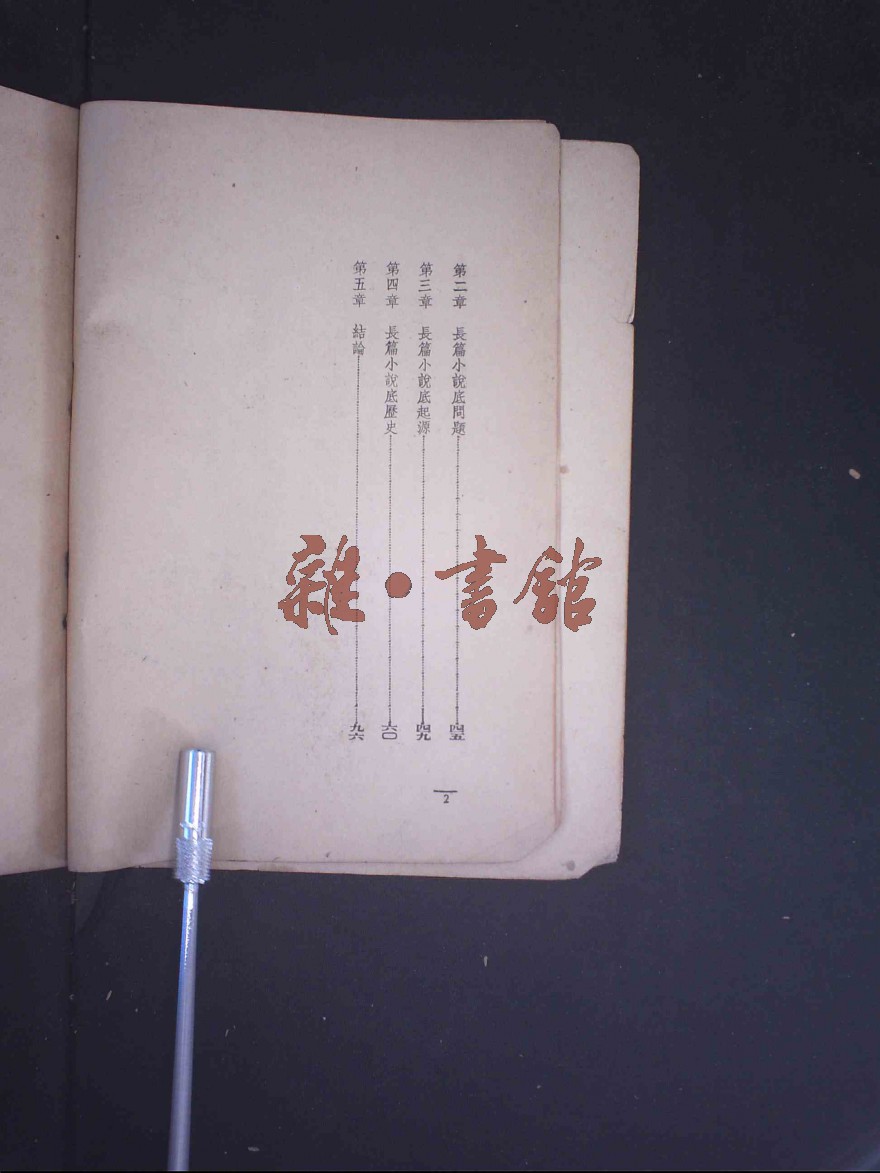 第二章 長篇小說底問題……四五
第三章 長篇小說底起源……四九
第四章 長篇小說底歷史……六〇
第五章 結論……九六
2
雜·書館